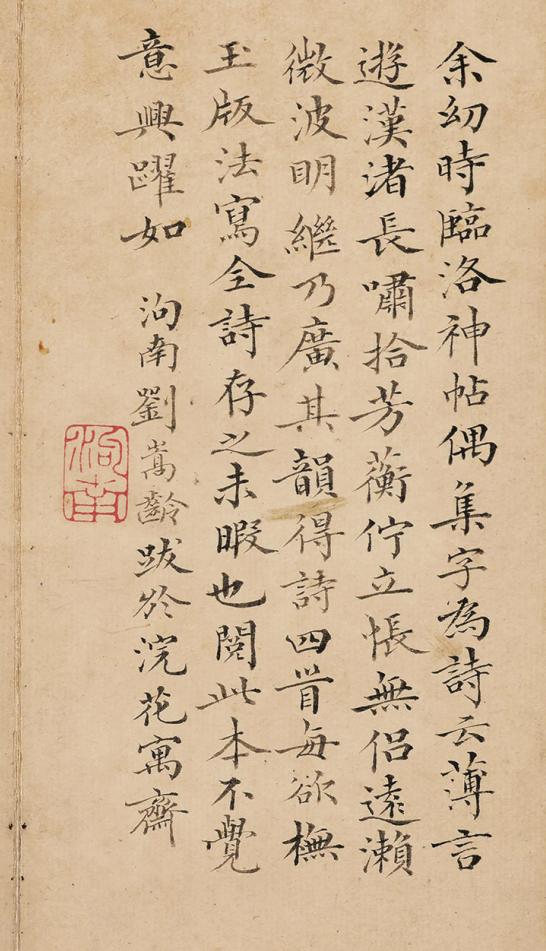 余幼時臨洛神帖偶集字為詩云薄言
遊漢渚長嘯拾芳蘅佇立悵無侶遠瀨
微波明繼乃廣其韻得詩四首每欲橅
玉版法寫全詩存之未暇也閱此本不覺
意興躍如 泃南劉嵩齡跋於浣花寓齋
泃南